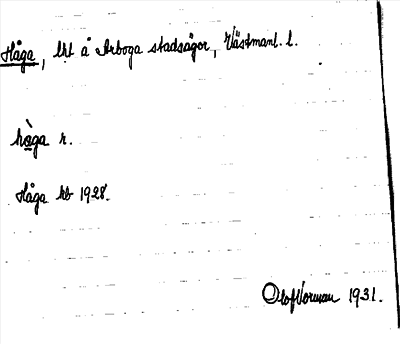 Håga, lht å Arboga stadsägor, Västmanl. l.
hàga r.
Håga kb 1928.
Olof Vorman 1931.